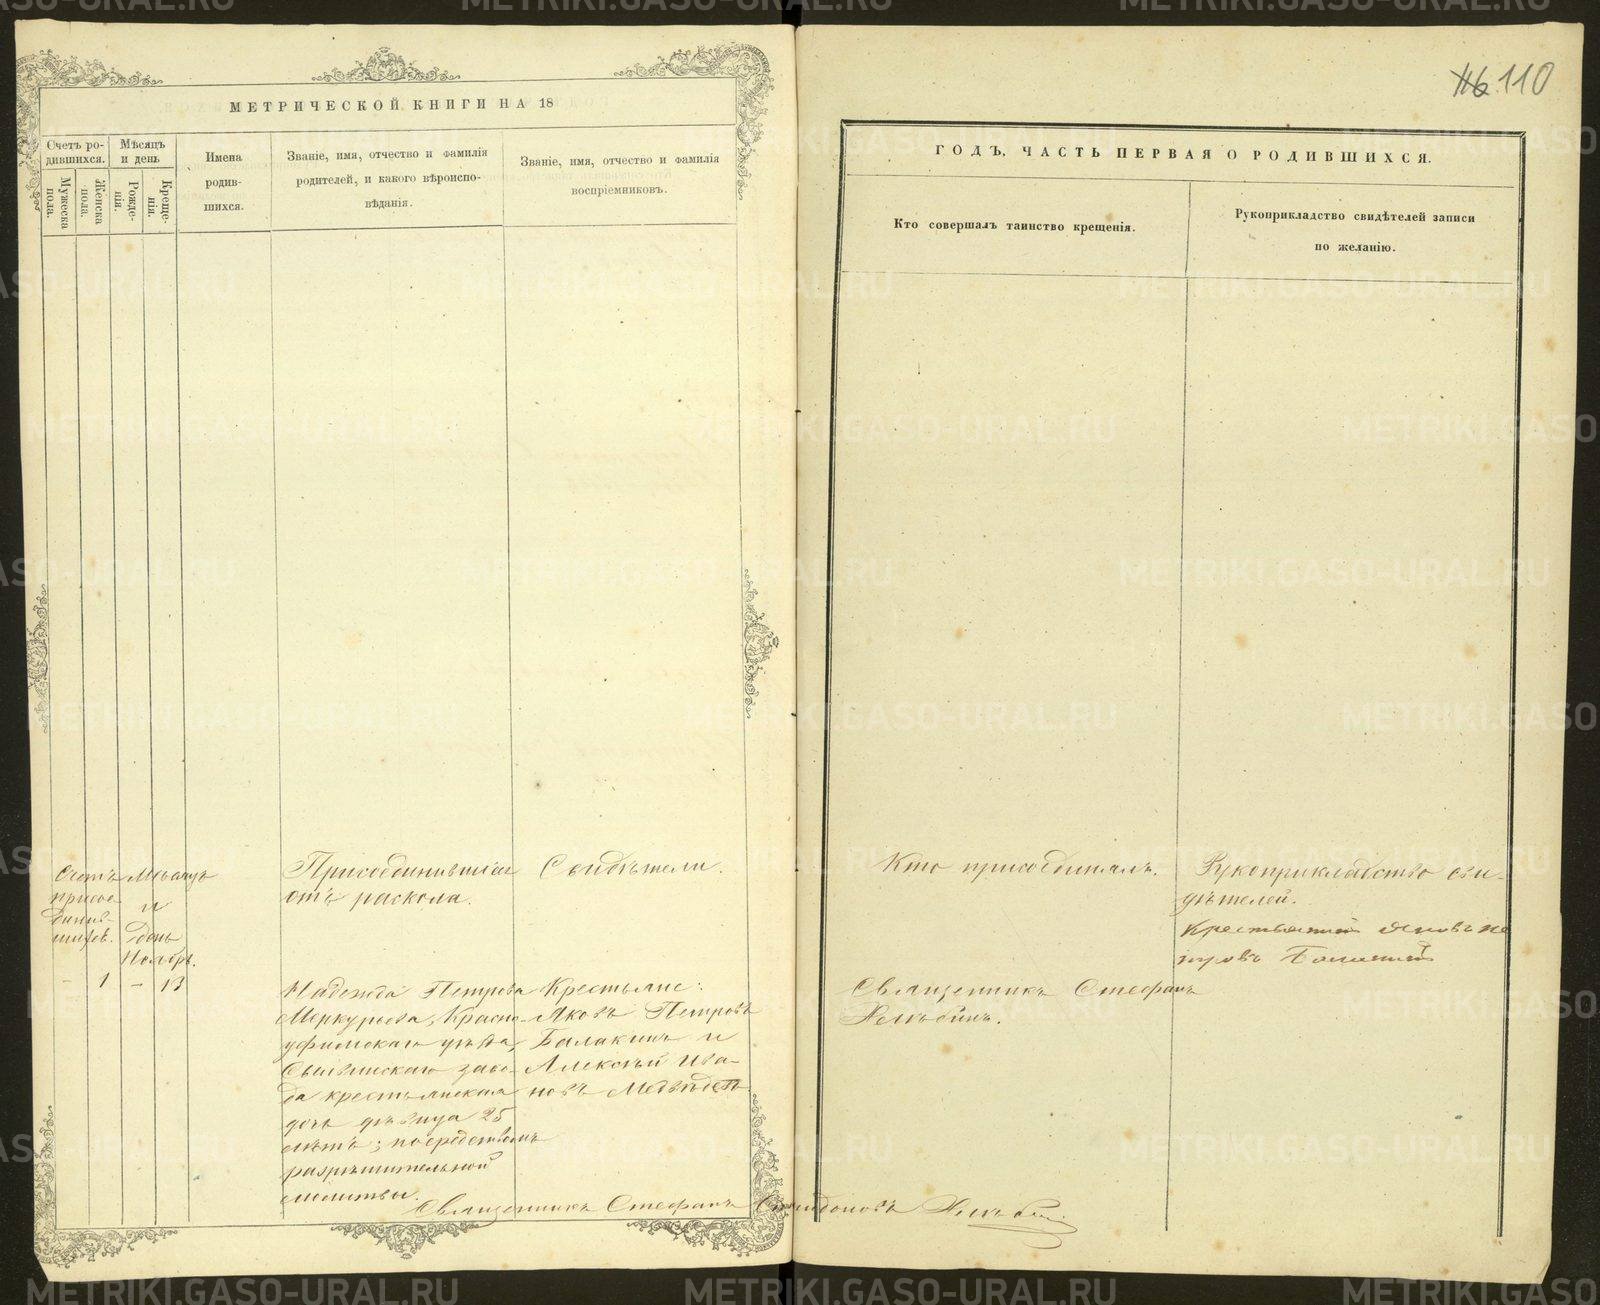 МЕТРИЧЕСКОЙ КНИГИ НА 18
Счетъ ро-
дившихся.
Мужеска
пола.
Женска
пола.
Мѣсяцъ
и день
Рожде-
нія.
Креще-
нія.
Имена
родив-
шихся.
Званіе, имя, отчество и фамилія
родителей, и какого вѣроиспо-
вѣданія.
Званіе, имя, отчество и фамилія
воспріемниковъ.
Счетъ
присое-
динив-
шихся.
Мѣсяцъ
и
день
Ноябрь.
- 1 - 13
Присоединившійся
отъ раскола.
Надежда Петрова
Меркурьева, Красно-
уфимскаго уѣзда,
Сылвинскаго заво-
да крестьянская
дочь дѣвица 25
лѣтъ; посредствомъ
разрѣшительной
молитвы.
Свидѣтели.
Крестьяне:
Яковъ Петровъ
Балакинъ и
Алексѣй Ива-
новъ
Священникъ Стефанъ Спиридоновъ
110
ГОДЪ, ЧАСТЬ ПЕРВАЯ О РОДИВШИХСЯ.
Кто совершалъ таинство крещенія.
Рукоприкладство свидѣтелей записи
по желанію.
Кто присоединялъ.
Священникъ Стефанъ
Рукоприкладство сви-
дѣтелей.
Яковъ Пе
тровъ
METRIKI.GASO-URAL.RU